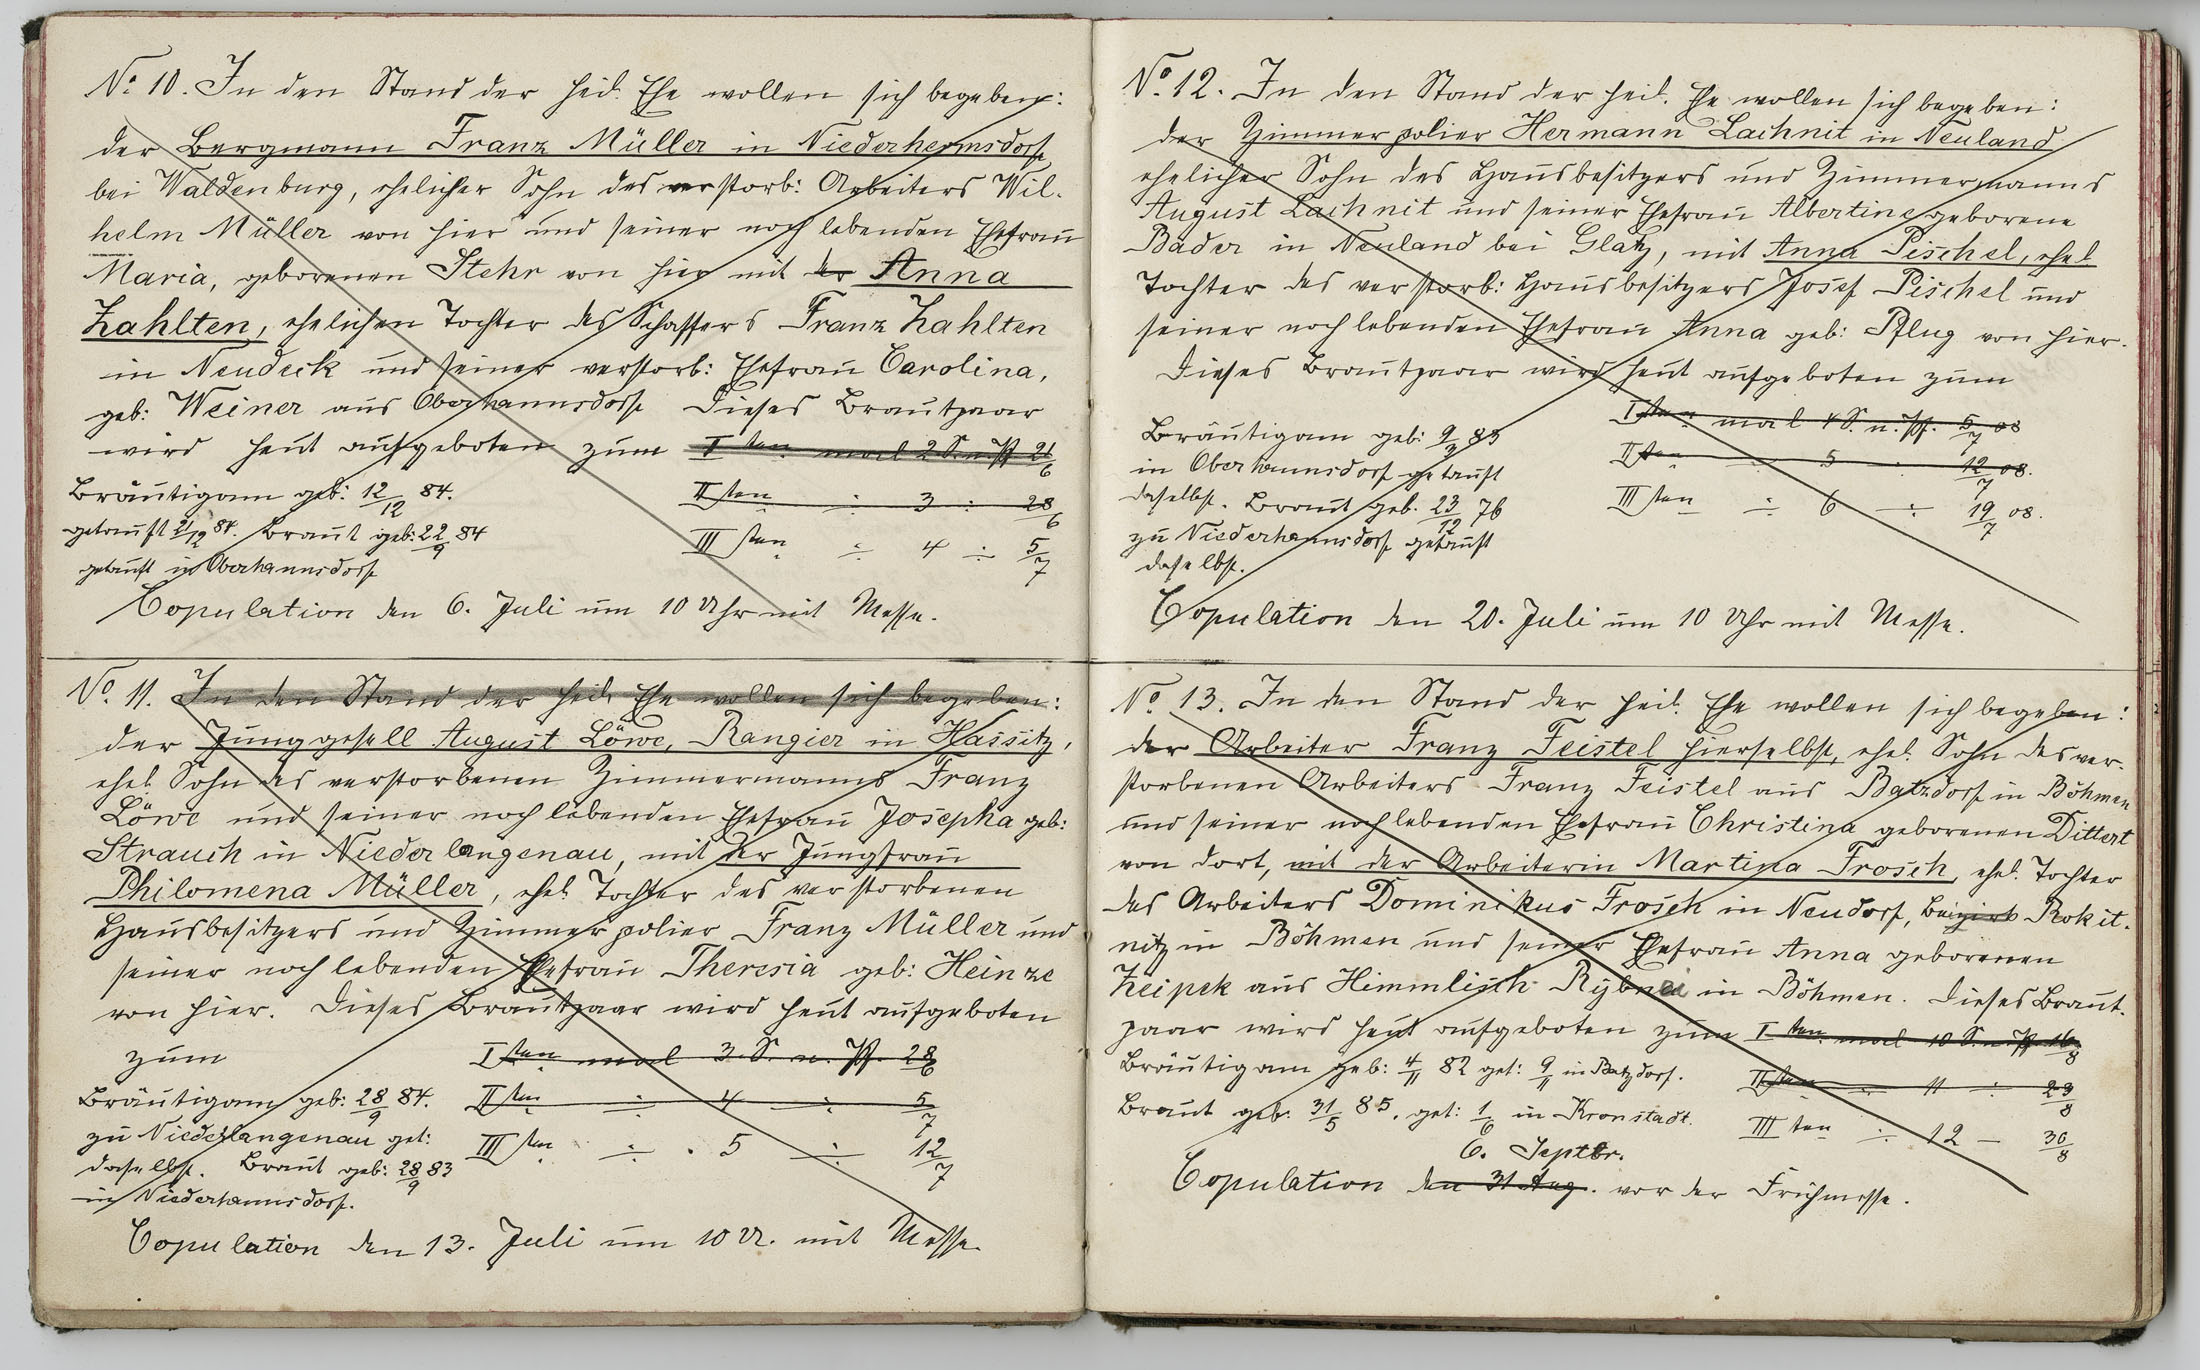 No. 10. In den Stand der heil. Ehe wollen sich begeben:
der Bergmann Franz Müller in Niederhermsdorf
bei Waldenburg, ehelicher Sohn des verstorb: Arbeiters Wil-
helm Müller von hier und seiner noch lebenden Ehefrau
Maria, geborenen Stehr von hier mit der Anna
Zahlten, ehelichen Tochter des Schaffers Franz Zahlten
in Neudeck und seiner verstorb: Ehefrau Carolina,
geb: Weiner aus Oberhannsdorf. Dieses Brautpaar
wird heut aufgeboten zum I ten mal 2 S. n. Pf. 21/6
Bräutigam geb: 12/12 84. II ten ÷ 3 ÷ 28/6
getauft 21/12 84. Braut geb: 22/9 84 III ten ÷ 4 ÷ 5/7
getauft in Oberhannsdorf
Copulation den 6. Juli um 10 Uhr mit Messe.
No. 11. In den Stand der heil. Ehe wollen sich begeben:
der Junggesell August Löwe, Rangier in Hassitz,
ehel. Sohn des verstorbenen Zimmermanns Franz
Löwe und seiner noch lebenden Ehefrau Josepha geb:
Strauch in Niederlangenau, mit der Jungfrau
Philomena Müller, ehel. Tochter des verstorbenen
Hausbesitzers und Zimmerpolier Franz Müller und
seiner noch lebenden Ehefrau Theresia geb: Heinze
von hier. Dieses Brautpaar wird heut aufgeboten
zum I ten mal 3. S. n. Pf. 28/6
Bräutigam geb: 28/9 84. II ten ÷ 4 ÷ 5/7
zu Niederlangenau get: III ten ÷ 5 ÷ 12/7
daselbst. Braut geb: 28/9 83
in Niederhannsdorf.
Copulation den 13. Juli um 10 U. mit Messe.
No. 12. In den Stand der heil. Ehe wollen sich begeben:
der Zimmerpolier Hermann Lachnit in Neuland
ehelicher Sohn des Hausbesitzers und Zimmermanns
August Lachnit und seiner Ehefrau Albertine geborene
Bader in Neuland bei Glatz, mit Anna Pischel, ehel
Tochter des verstorb: Hausbesitzers Josef Pischel und
seiner noch lebenden Ehefrau Anna geb: Pflug von hier.
Dieses Brautpaar wird heut aufgeboten zum
I ten mal 4 S. n. Pf. 5/7 08
Bräutigam geb: 9/3 83 II ten ÷ 5 ÷ 12/7 08.
in Oberhannsdorf getauft III ten ÷ 6 ÷ 19/7 08.
daselbst. Braut geb. 23/12 76
zu Niederhannsdorf getauft
daselbst.
Copulation den 20. Juli um 10 Uhr mit Messe.
No. 13. In den Stand der heil. Ehe wollen sich begeben:
der Arbeiter Franz Feistel hierselbst, ehel. Sohn des ver-
storbenen Arbeiters Franz Feistel aus Batzdorf in Böhmen
und seiner noch lebenden Ehefrau Christina geborenen Dittert
von dort, mit der Arbeiterin Martina Frosch, ehel. Tochter
des Arbeiters Dominikus Frosch in Neudorf, Bezirk Rokit-
nitz in Böhmen und seiner Ehefrau Anna geborenen
Zeipek aus Himmlisch Rybnei in Böhmen. Dieses Braut-
paar wird heut aufgeboten zum I ten mal 10 S. n. Pf. 16/8
Bräutigam geb: 4/11 82 get: 9/11 in Batzdorf. II ten ÷ 11 ÷ 23/8
Braut geb: 31/5 85. get: 1/6 in Kronstadt. III ten ÷ 12 — 30/8
6. Septbr.
Copulation den 31 Aug. vor der Frühmesse.